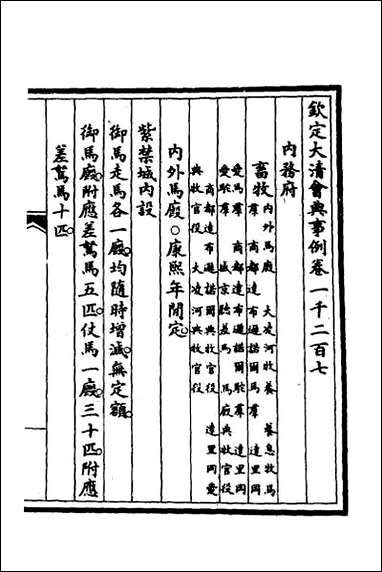 欽定大清會典事例卷一千二百七
內務府
畜牧 內外馬廠 大凌河牧養 養息牧馬
羣 商都達布遜諾爾馬羣 達里岡
愛馬羣 商都達布遜諾爾駝羣 達里岡
愛駝羣 盛京騸差馬 馬廠興牧官役
商都達布遜諾爾興牧官役 達里岡愛
興牧官役 大凌河興牧官役
內外馬廠○康熙年間定
紫禁城內設
御馬走馬各一廠均隨時增減無定額
御馬廠附應差駑馬五匹仗馬一廠三十匹附應
差駑馬十匹